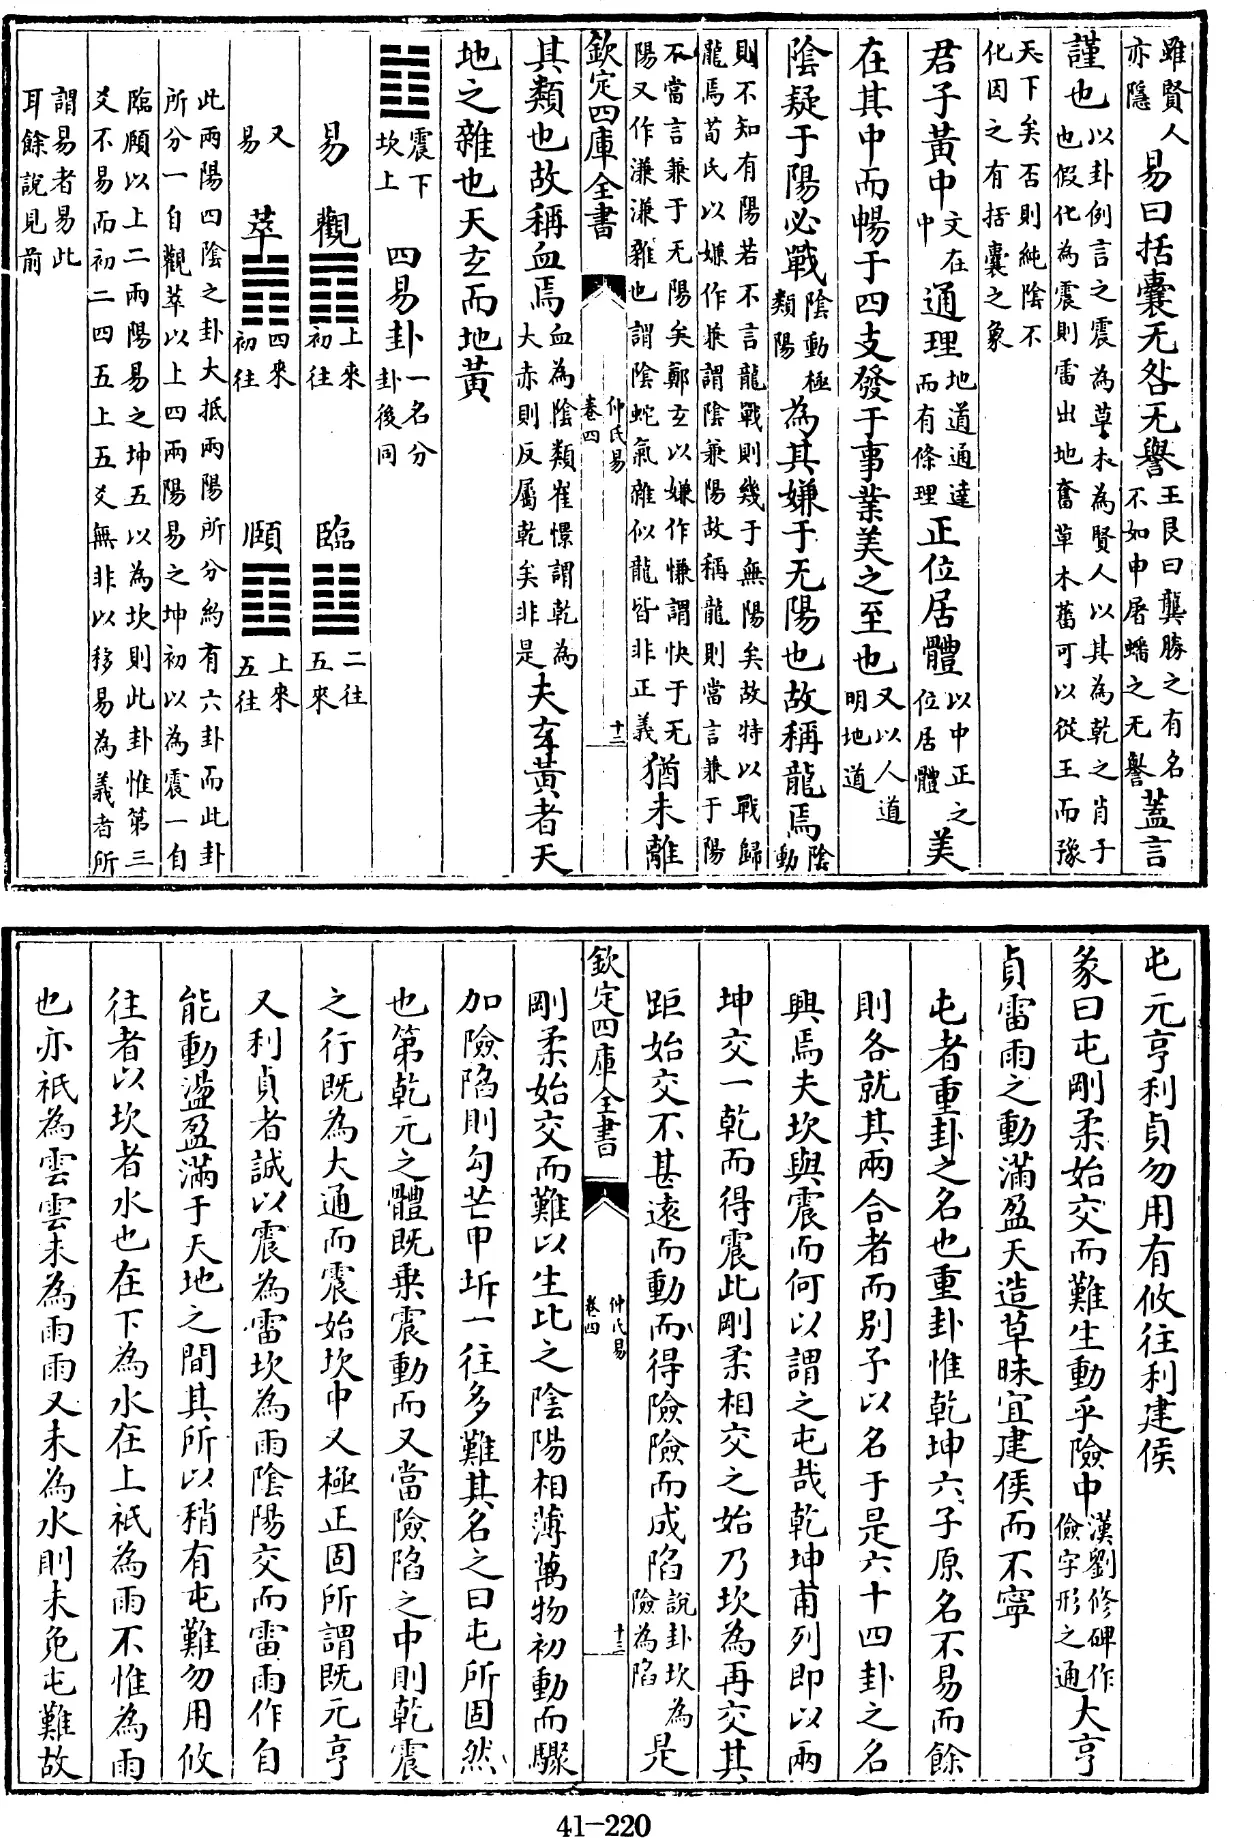 雖賢人亦隱易曰括囊无咎无譽王艮曰龔勝之有名不如申屠蟠之无譽蓋言
謹也以卦例言之震為草木為賢人以其為乾之肖子也假化為震則雷出地奮草木舊可以從王而豫
天下矣否則純陰不化因之有括囊之象
君子黃中文在中通理地道通達而有條理正位居體以中正之位居體美
在其中而暢于四支發于事業美之至也又以人道明地道
陰疑于陽必戰陰動極類陽為其嫌于无陽也故稱龍焉陰動
則不知有陽若不言龍戰則幾于無陽矣故特以戰歸龍焉荀氏以嫌作兼謂陰兼陽故稱龍則當言兼于陽
不當言兼于无陽矣鄭玄以嫌作慊謂快于无陽又作溓溓雜也謂陰蛇氣雜似龍皆非正義猶未離
欽定四庫全書 仲氏易 卷四 十二
其類也故稱血焉血為陰類崔憬謂乾為大赤則反屬乾矣非是夫玄黃者天
地之雜也天玄而地黃
䷂震下坎上 四易卦一名分卦後同
易 觀䷓上來初往 臨䷒二往五來
又易 萃䷬四來初往 頤䷚上來五往
此兩陽四陰之卦大抵兩陽所分約有六卦而此卦所分一自觀萃以上四兩陽易之坤初以為震一自
臨頤以上二兩陽易之坤五以為坎則此卦惟第三爻不易而初二四五上五爻無非以移易為義者所
謂易者易此耳餘說見前
屯元亨利貞勿用有攸往利建侯
彖曰屯剛柔始交而難生動乎險中漢劉修碑作儉字形之通大亨
貞雷雨之動滿盈天造草昧宜建侯而不寧
屯者重卦之名也重卦惟乾坤六子原名不易而餘
則各就其兩合者而別予以名于是六十四卦之名
興焉夫坎與震而何以謂之屯哉乾坤甫列即以兩
坤交一乾而得震此剛柔相交之始乃坎為再交其
距始交不甚遠而動而得險險而成陷說卦坎為險為陷是
欽定四庫全書 仲氏易 卷四 十三
剛柔始交而難以生比之陰陽相薄萬物初動而驟
加險陷則勾芒甲坼一往多難其名之曰屯所固然
也第乾元之體既乘震動而又當險陷之中則乾震
之行既為大通而震始坎中又極正固所謂既元亨
又利貞者誠以震為雷坎為雨陰陽交而雷雨作自
能動盪盈滿于天地之間其所以稍有屯難勿用攸
往者以坎者水也在下為水在上祇為雨不惟為雨
也亦祇為雲雲未為雨雨又未為水則未免屯難故
41-220